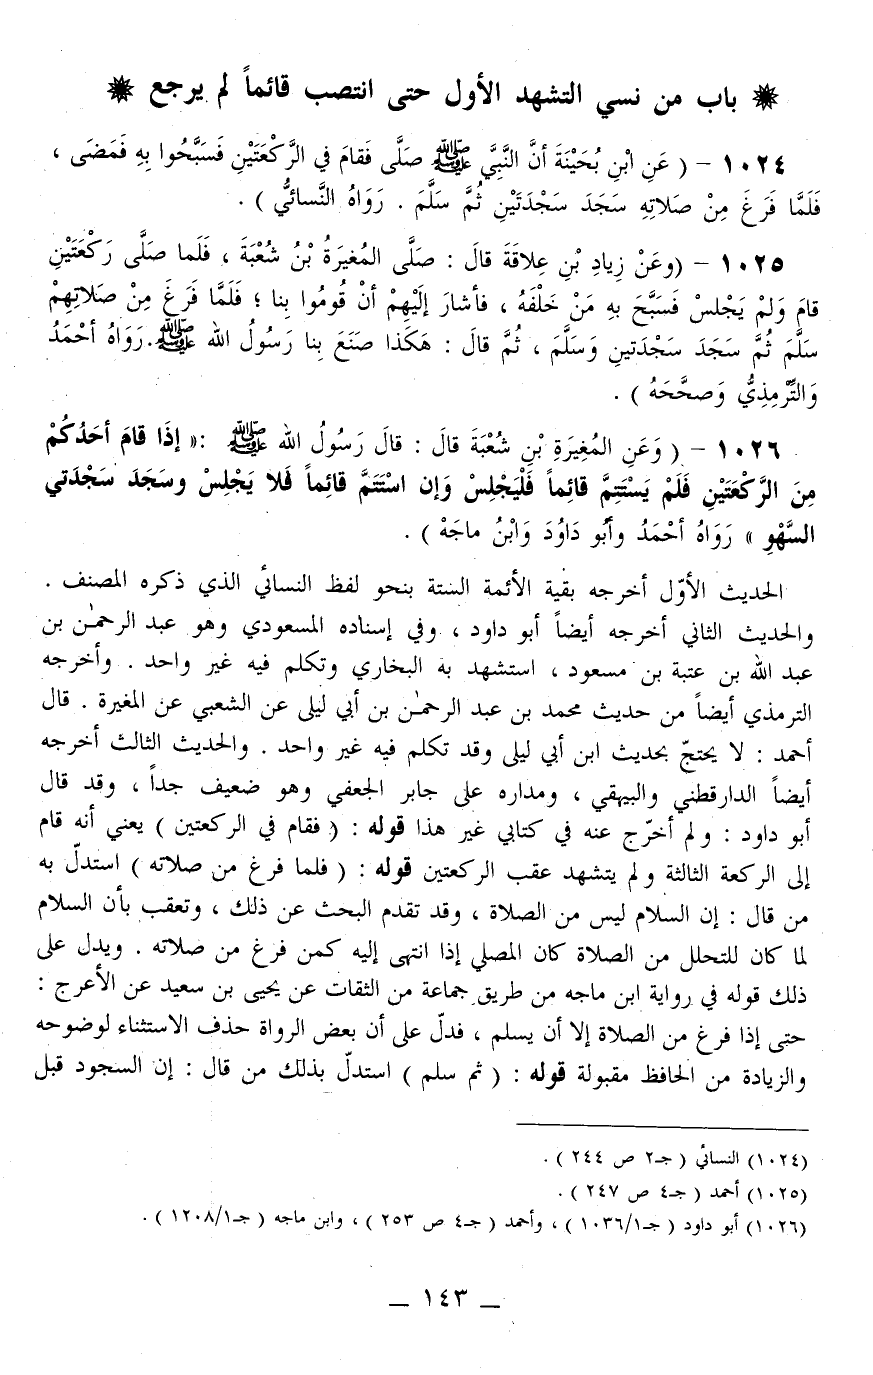 ❋ باب من نسي التشهد الأول حتى انتصب قائماً لم يرجع ❋
١٠٢٤ – ( عَنِ ابْنِ بُحَيْنَةَ أنَّ النَّبِيَّ ﷺ صَلَّى فَقامَ في الرَّكْعَتَيْنِ فَسَبَّحُوا بِهِ فَمَضَى ،
فَلَمَّا فَرَغَ مِنْ صَلاتِهِ سَجَدَ سَجْدَتَيْنِ ثُمَّ سَلَّمَ . رَوَاهُ النَّسائيُّ ) .
١٠٢٥ – (وعَنْ زِيادِ بْنِ عِلاقَةَ قالَ : صَلَّى المُغيرَةُ بْنُ شُعْبَةَ ، فَلَما صَلَّى رَكْعَتَيْنِ
قامَ وَلمْ يَجْلسْ فَسَبَّحَ بِهِ مَنْ خَلْفَهُ ، فأشارَ إلَيْهِمْ أنْ قُومُوا بنا ؛ فَلَمَّا فَرَغَ مِنْ صَلاتِهِمْ
سَلَّمَ ثُمَّ سَجَدَ سَجْدَتينِ وَسَلَّمَ ، ثُمَّ قالَ : هَكَذا صَنَعَ بِنا رَسُولُ الله ﷺ.رَوَاهُ أحْمَدُ
وَالتِّرْمِذِيُّ وَصحَّحَهُ ) .
١٠٢٦ – ( وَعَنِ المُغِيرَةِ بْنِ شُعْبَةَ قالَ : قالَ رَسُولُ الله ﷺ :« إذَا قامَ أحَدُكُمْ
مِنَ الرَّكْعَتَيْنِ فَلَمْ يَسْتَتِمَّ قائِماً فَلْيَجْلِسْ وَإن اسْتَتَمَّ قائِماً فَلا يَجْلِسْ وسَجَدَ سَجْدَتي
السَّهْوِ » رَوَاهُ أحْمَدُ وأبُو دَاوُدَ وَابْنُ ماجَهْ ) .
الحديث الأوّل أخرجه بقية الأئمة الستة بنحو لفظ النسائي الذي ذكره المصنف .
والحديث الثاني أخرجه أيضاً أبو داود ، وفي إسناده المسعودي وهو عبد الرحمٰن بن
عبد الله بن عتبة بن مسعود ، استشهد به البخاري وتكلم فيه غير واحد . وأخرجه
الترمذي أيضاً من حديث محمد بن عبد الرحمٰن بن أبي ليلى عن الشعبي عن المغيرة . قال
أحمد : لا يحتجّ بحديث ابن أبي ليلى وقد تكلم فيه غير واحد . والحديث الثالث أخرجه
أيضاً الدارقطني والبيهقي ، ومداره على جابر الجعفي وهو ضعيف جداً ، وقد قال
أبو داود : ولم أخرّج عنه في كتابي غير هذا قوله : ( فقام في الركعتين ) يعني أنه قام
إلى الركعة الثالثة ولم يتشهد عقب الركعتين قوله : ( فلما فرغ من صلاته ) استدلّ به
من قال : إن السلام ليس من الصلاة ، وقد تقدم البحث عن ذلك ، وتعقب بأن السلام
لما كان للتحلل من الصلاة كان المصلي إذا انتهى إليه كمن فرغ من صلاته . ويدل على
ذلك قوله في رواية ابن ماجه من طريق جماعة من الثقات عن يحيى بن سعيد عن الأعرج :
حتى إذا فرغ من الصلاة إلا أن يسلم ، فدلّ على أن بعض الرواة حذف الاستثناء لوضوحه
والزيادة من الحافظ مقبولة قوله : ( ثم سلم ) استدلّ بذلك من قال : إن السجود قبل
(١٠٢٤) النسائي ( جـ٢ ص ٢٤٤ ) .
(١٠٢٥) أحمد ( جـ٤ ص ٢٤٧ ) .
(١٠٢٦) أبو داود ( جـ١٠٣٦/١ ) ، وأحمد ( جـ٤ ص ٢٥٣ ) ، وابن ماجه ( جـ١٢٠٨/١ ) .
– ١٤٣ –